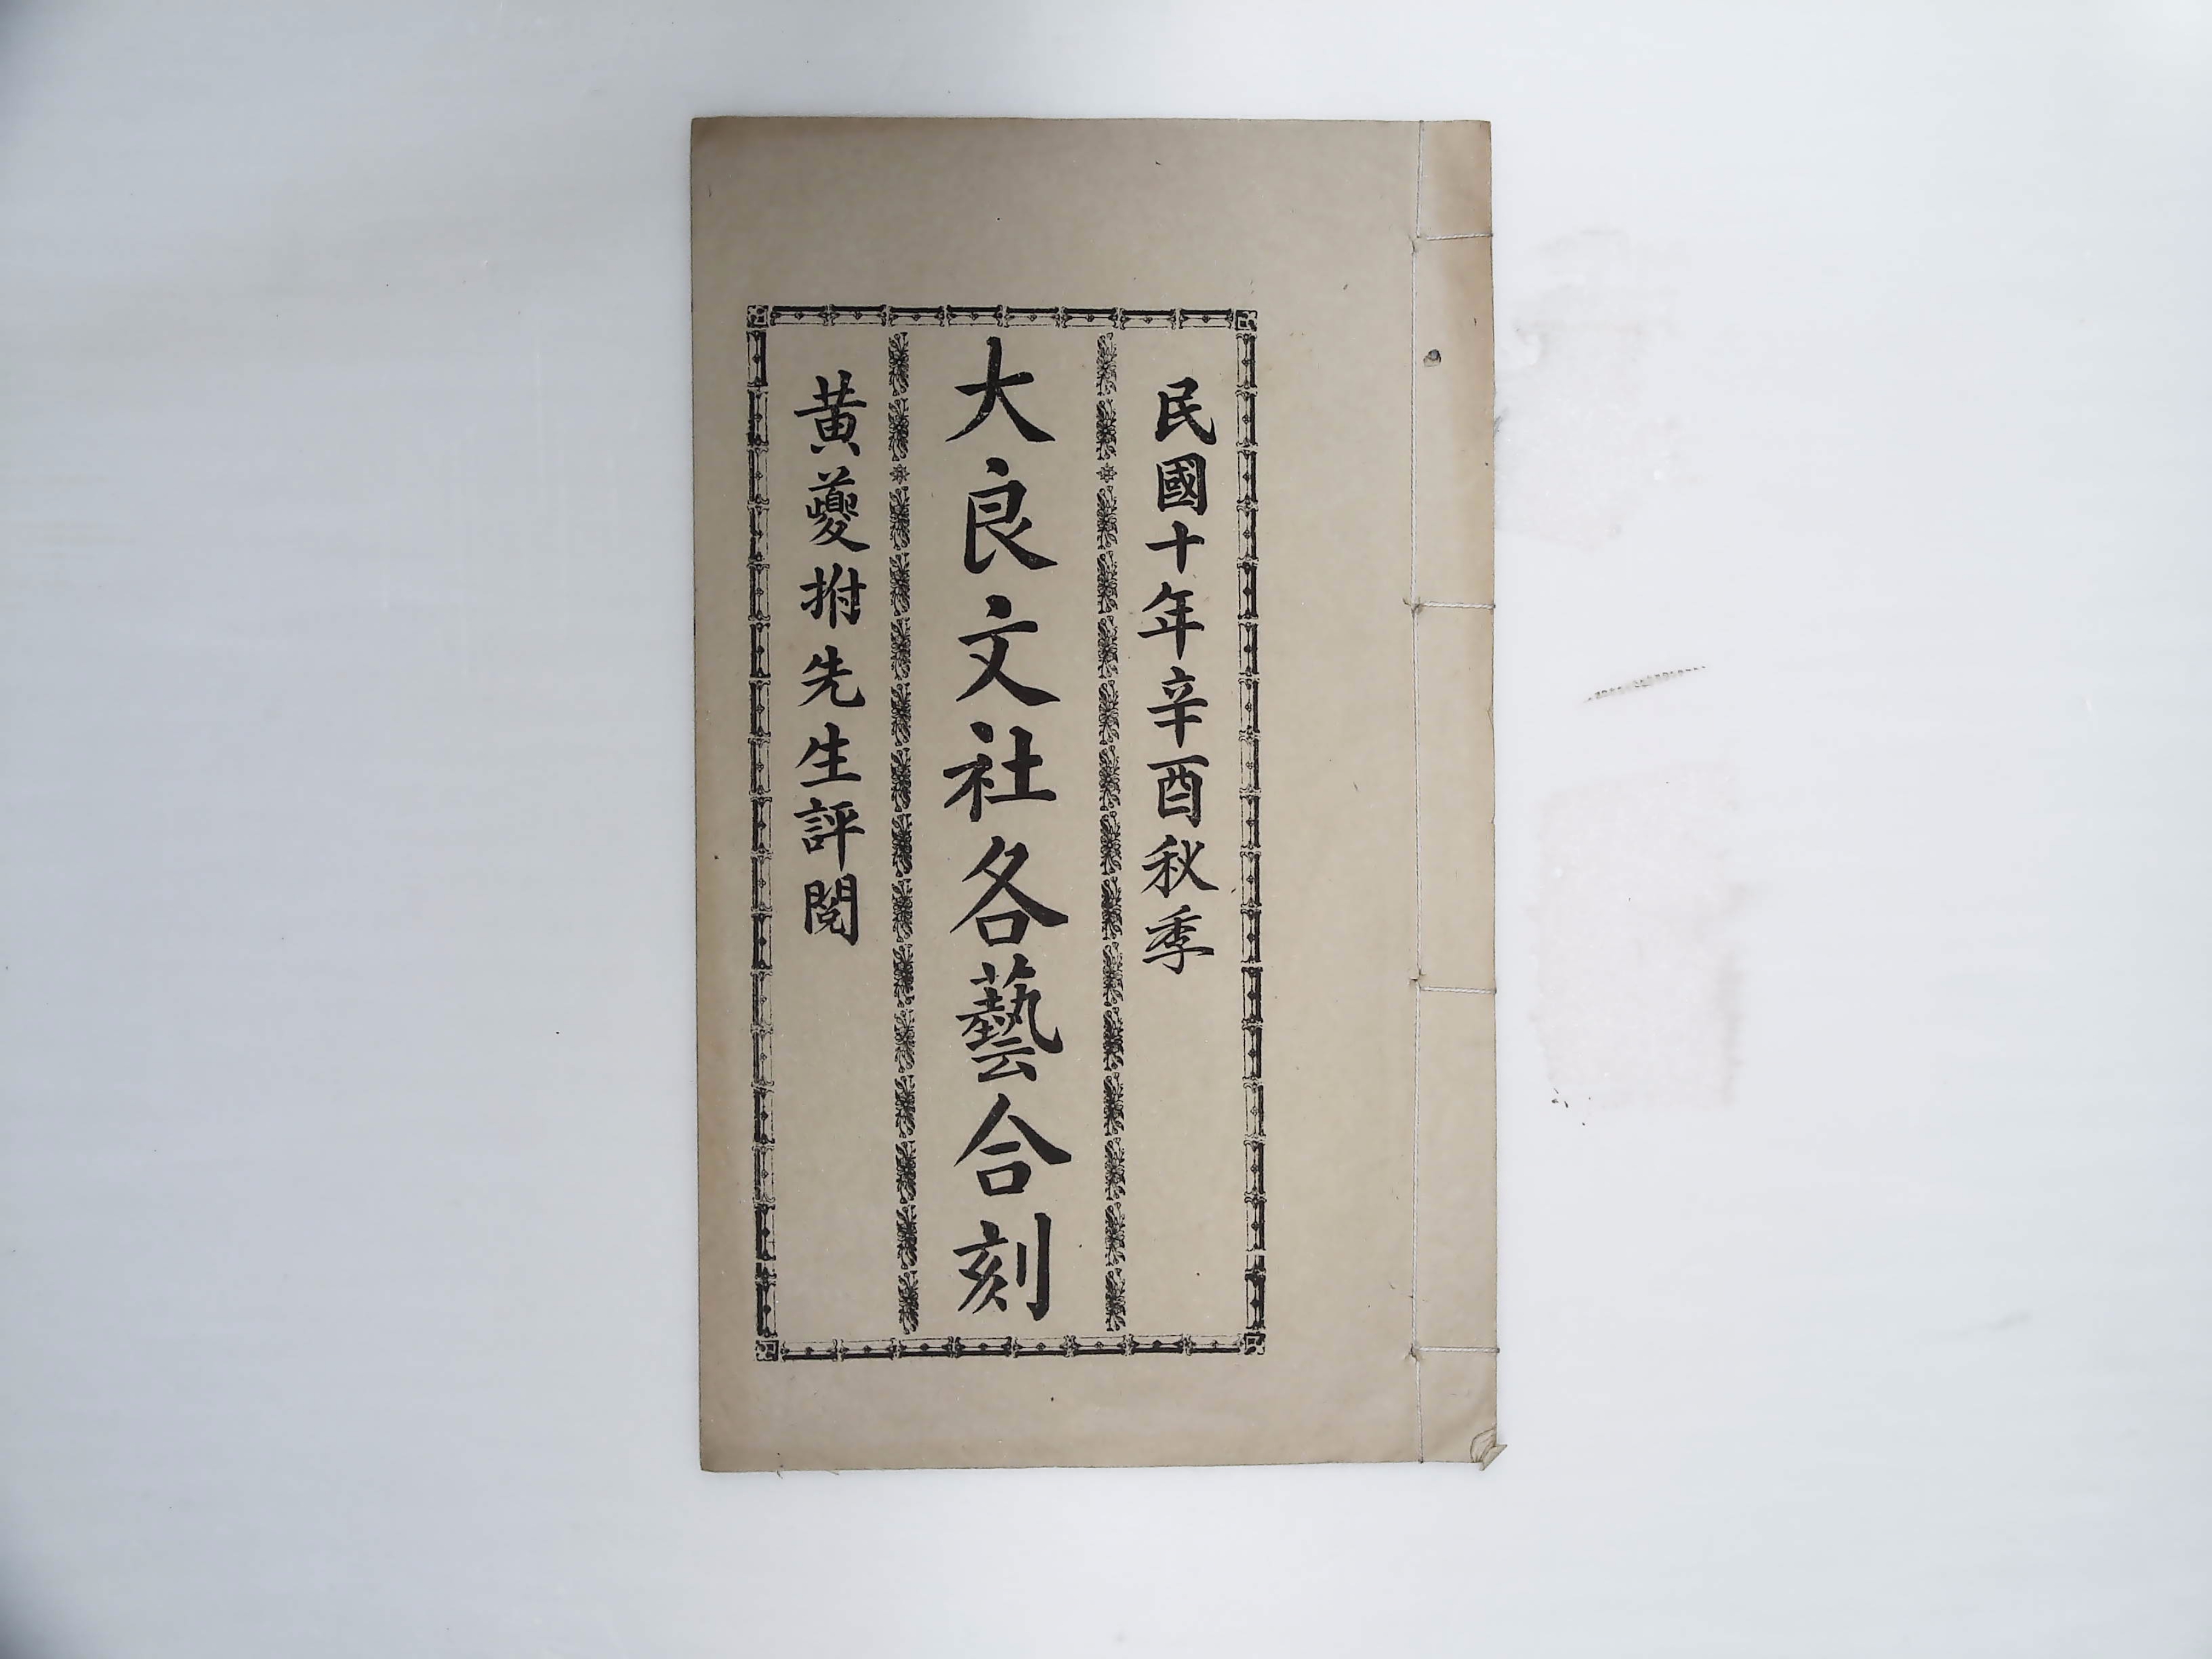 民國十年辛酉秋季
大良文社各藝合刻
黃夔拊先生評閱